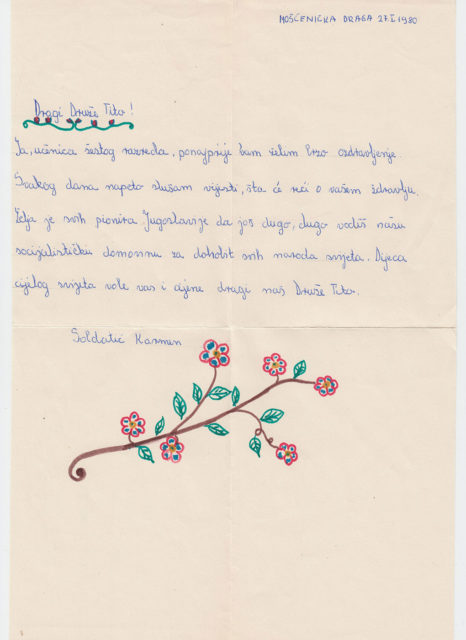 MOŠĆENIČKA DRAGA 27.I 1980
Dragi Druže Tito!
Ja, učenica šestog razreda, ponajprije Vam želim brzo ozdravljenje.
Svakog dana napeto slušam vijesti, šta će reći o vašem zdravlju.
Želja je svih pionira Jugoslavije da još dugo, dugo vodiš našu
socijalističku domovinu za dobrobit svih naroda svijeta. Djeca
cijelog svijeta vole vas i cijene dragi naš Druže Tito.
Soldatić Karmen